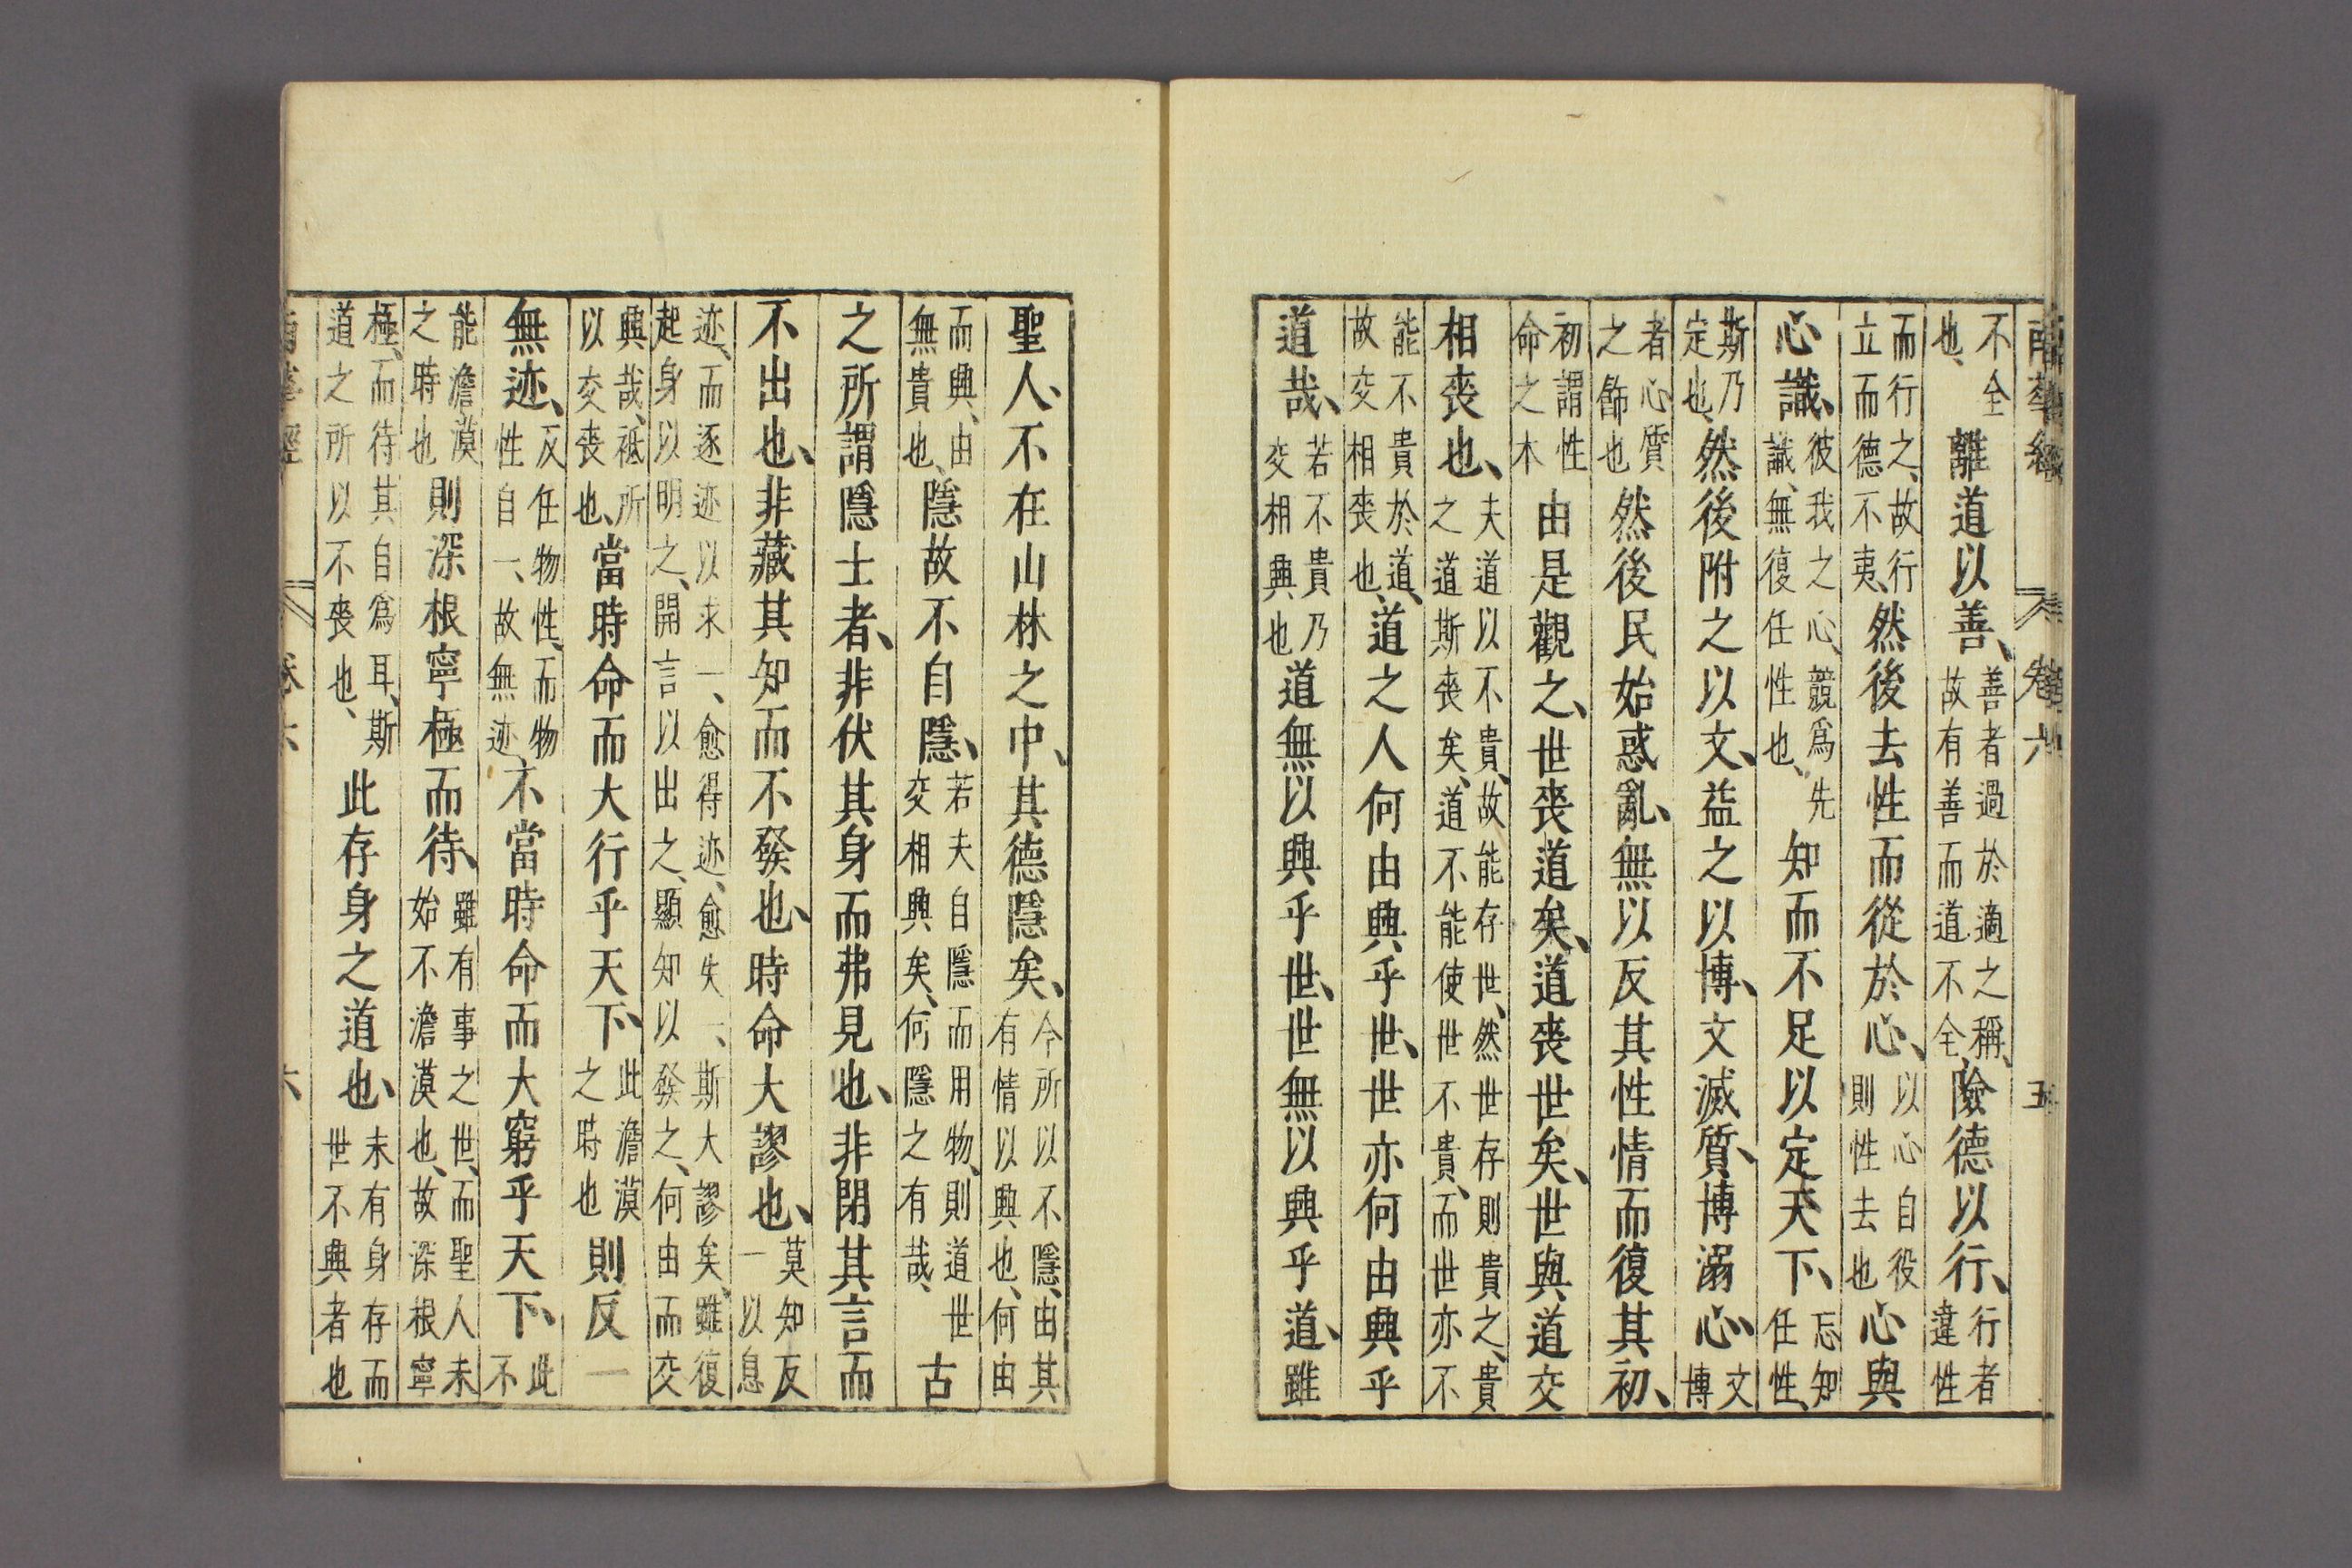 南華經 卷六 五
不全也、離道以善、善者過於適之稱、故有善而道不全、險德以行、行者違性
而行之、故行立而德不夷、然後去性而從於心、以心自役則性去也心與
心識、彼我之心、競爲先識、無復任性也、知而不足以定天下、忘知任性、
斯乃定也、然後附之以文、益之以博、文滅質、博溺心、文博
者心質之飾也然後民始惑亂、無以反其性情而復其初、
初謂性命之木由是觀之、世喪道矣、道喪世矣、世與道交
相喪也、夫道以不貴、故能存世、然世存則貴之、貴之道斯喪矣、道不能使世不貴、而世亦不
能不貴於道、故交相喪也、道之人何由興乎世、世亦何由興乎
道哉、若不貴乃交相興也道無以興乎世、世無以興乎道、雖
聖人、不在山林之中、其德隱矣、今所以不隱、由其有情以興也、何由
而興、由無貴也、隱故不自隱、若夫自隱而用物、則道世交相興矣、何隱之有哉、古
之所謂隱士者、非伏其身而弗見也、非閉其言而
不出也、非藏其知而不發也、時命大謬也、莫知反一以息
迹、而逐迹以求一、愈得迹、愈失一、斯大謬矣、雖復起身以明之、開言以出之、顯知以發之、何由而交
興哉、祗所以交喪也、當時命而大行乎天下、此澹漠之時也則反一
無迹、反任物性、而物性自一、故無迹、不當時命而大窮乎天下、此不
能澹漠之時也則深根寧極而待、雖有事之世、而聖人未始不澹漠也、故深根寧
極、而待其自爲耳、斯道之所以不喪也、此存身之道也、未有身存而世不興者也
南華經 卷六 六